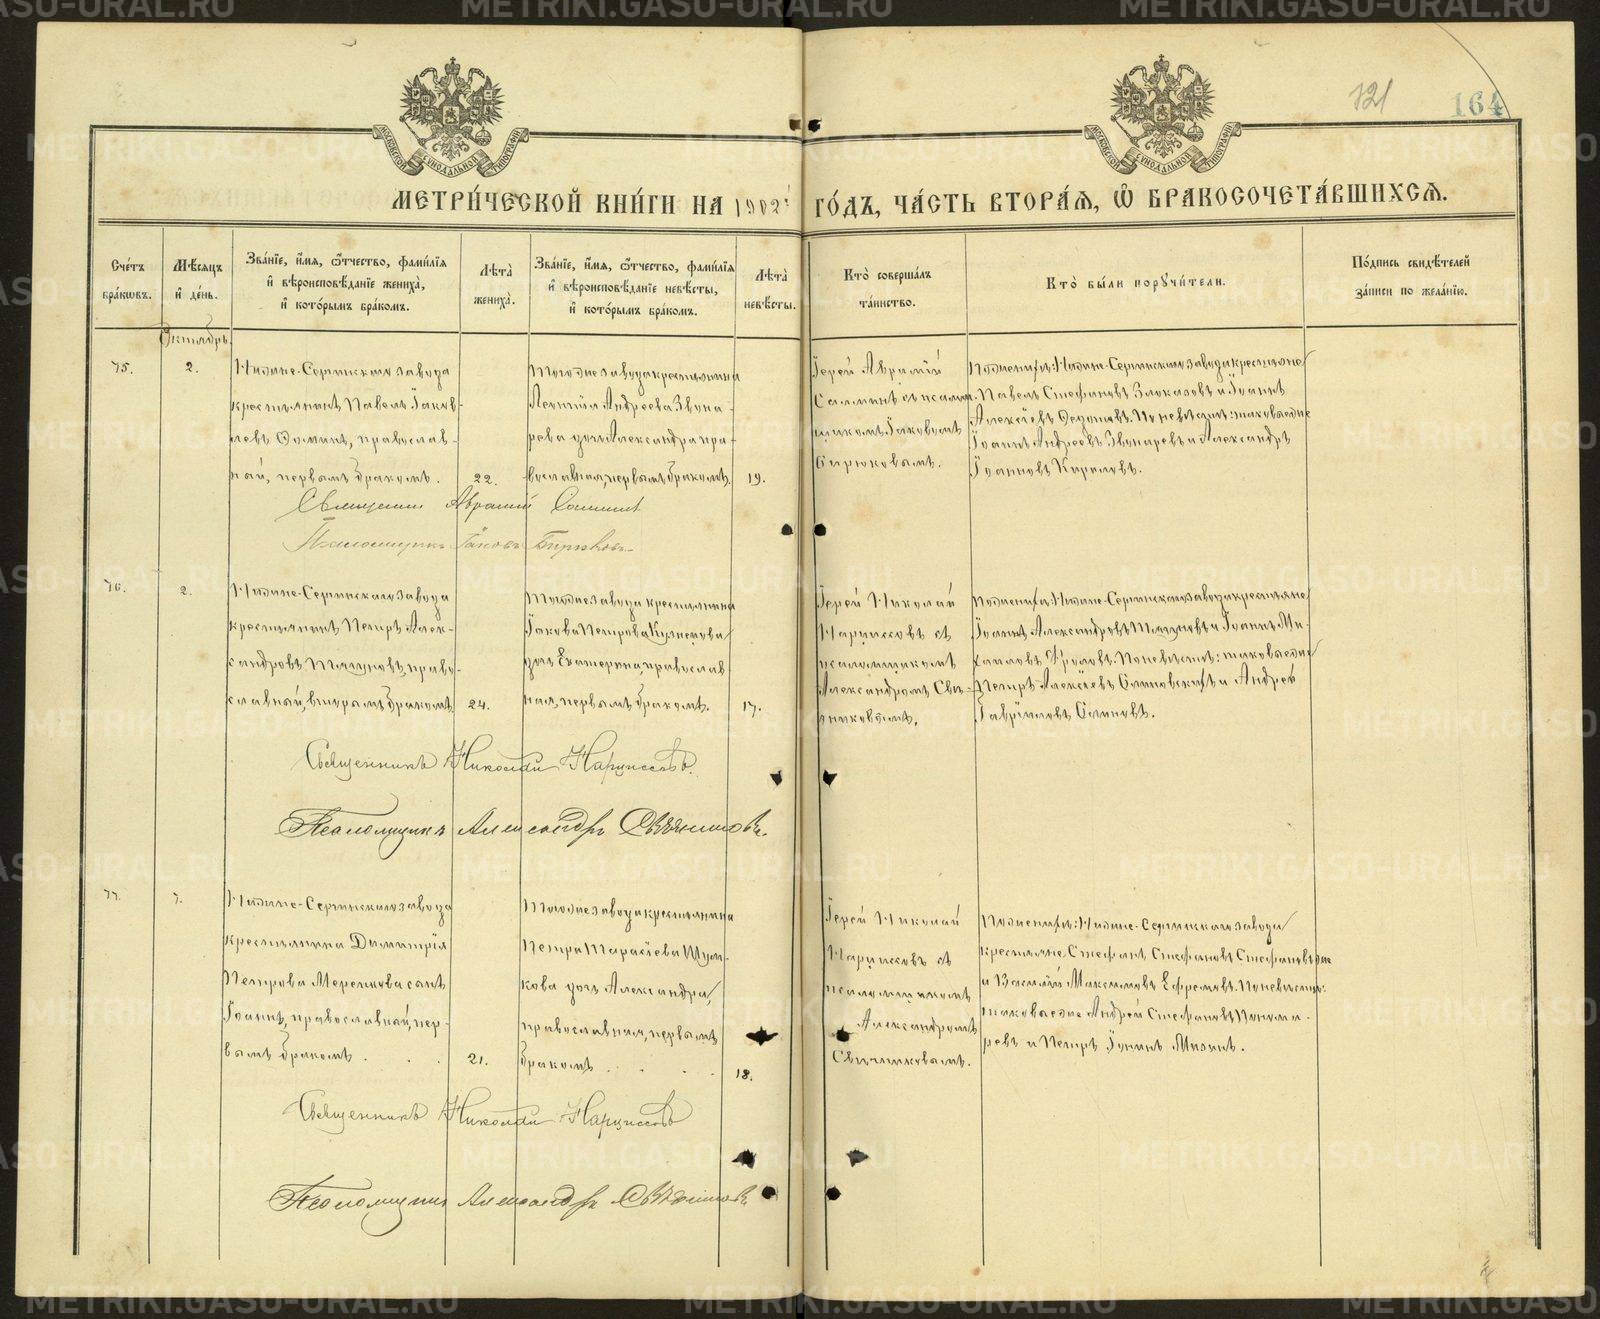 121
164
МОСКОВСКОЙ СѴНОДАЛЬНОЙ ТИПОГРАФІИ
МОСКОВСКОЙ СѴНОДАЛЬНОЙ ТИПОГРАФІИ
МЕТРИ́ЧЕСКОЙ КНИ́ГИ НА 1902 ГО́ДЪ, ЧА́СТЬ ВТОРА́Я, Ѿ БРАКОСОЧЕТА́ВШИХСЯ.
Сче́тъ бра́кωвъ.
Мѣ́сяцъ и҆ де́нь.
Зва́нїе, и҆́мя, ѻ҆́тчество, фами́лїя и҆ вѣроисповѣ́данїе жениха̀, и҆ кото́рымъ бра́комъ.
Лѣ́та жениха̀.
Зва́нїе, и҆́мя, ѻ҆́тчество, фами́лїя и҆ вѣроисповѣ́данїе невѣ́сты, и҆ кото́рымъ бра́комъ.
Лѣ́та невѣ́сты.
Кто̀ соверша́лъ та́инство.
Кто̀ бы́ли поручи́тели.
По́дпись свидѣ́телей за́писи по жела́нїю.
Октябрь.
75.
2.
Нижне-Сергинскаго завода
крестьянинъ Павелъ Іаков-
левъ Ѳоминъ, православ-
ный, первымъ бракомъ.
22.
Тогоже завода крестьянина
Андреева Звона-
рева дочь Александра пра-
вославная, первымъ бракомъ.
19.
Іерей Аврамій
съ псалом-
щикомъ Іаковомъ
Бирюковымъ.
По женихѣ: Нижне-Сергинскаго завода крестьяне
Павелъ Стефановъ и Іоаннъ
Алексіевъ Ѳедотовъ. По невѣстѣ: таковыеже
Іоаннъ Андреевъ Звонаревъ и Александръ
Іоанновъ Кириловъ.
Священникъ Аврамій
Псаломщикъ Іаковъ Бирюковъ
76.
2.
Нижне-Сергинскаго завода
крестьянинъ Петръ Алек-
сандровъ право-
славный, вторымъ бракомъ
24.
Тогоже завода крестьянина
Іакова Петрова Кузнецова
дочь Екатерина, православ-
ная, первымъ бракомъ.
17.
Іерей Николай
Нарциссовъ съ
псаломщикомъ
Александромъ Свѣ-
чниковымъ.
По женихѣ: Нижне-Сергинскаго завода крестьяне
Іоаннъ Александровъ и Іоаннъ Ми-
хаиловъ Фроловъ. По невѣстѣ: таковыеже
Петръ Алексіевъ и Андрей
Гавріиловъ
Священникъ Николай Нарциссовъ.
Псаломщикъ Александръ Свѣчниковъ.
77.
7.
Нижне-Сергинскаго завода
крестьянина Димитрія
Петрова Меренкова сынъ
Іоаннъ, православный, пер-
вымъ бракомъ
21.
Тогоже завода крестьянина
Петра Тарасіева Шум-
кова дочь Александра,
православная, первымъ
бракомъ
18.
Іерей Николай
Нарциссовъ съ
псаломщикомъ
Александромъ
Свѣчниковымъ.
По женихѣ: Нижне-Сергинскаго завода
крестьяне Стефанъ Стефановъ
и Василій Максимовъ Ефремовъ. По невѣстѣ:
таковыеже Андрей Стефановъ Понома-
ревъ и Петръ Мизинъ.
Священникъ Николай Нарциссовъ
Псаломщикъ Александръ Свѣчниковъ
METRIKI.GASO-URAL.RU